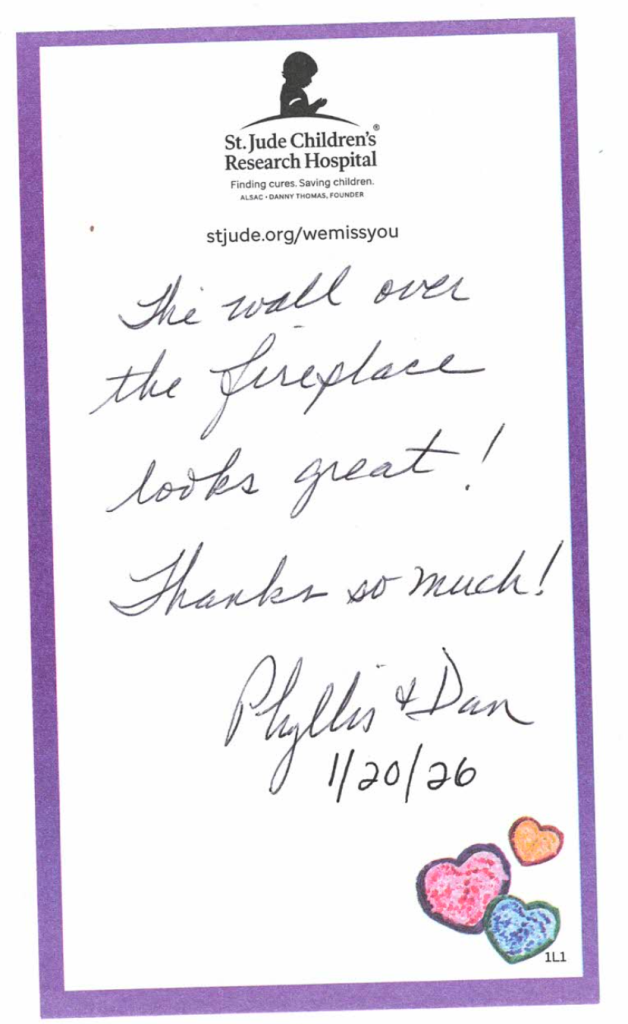 St. Jude Children's®
Research Hospital
Finding cures. Saving children.
ALSAC • DANNY THOMAS, FOUNDER
stjude.org/wemissyou
The wall over
the fireplace
looks great!
Thanks so much!
Phyllis & Dan
1/20/26
1L1